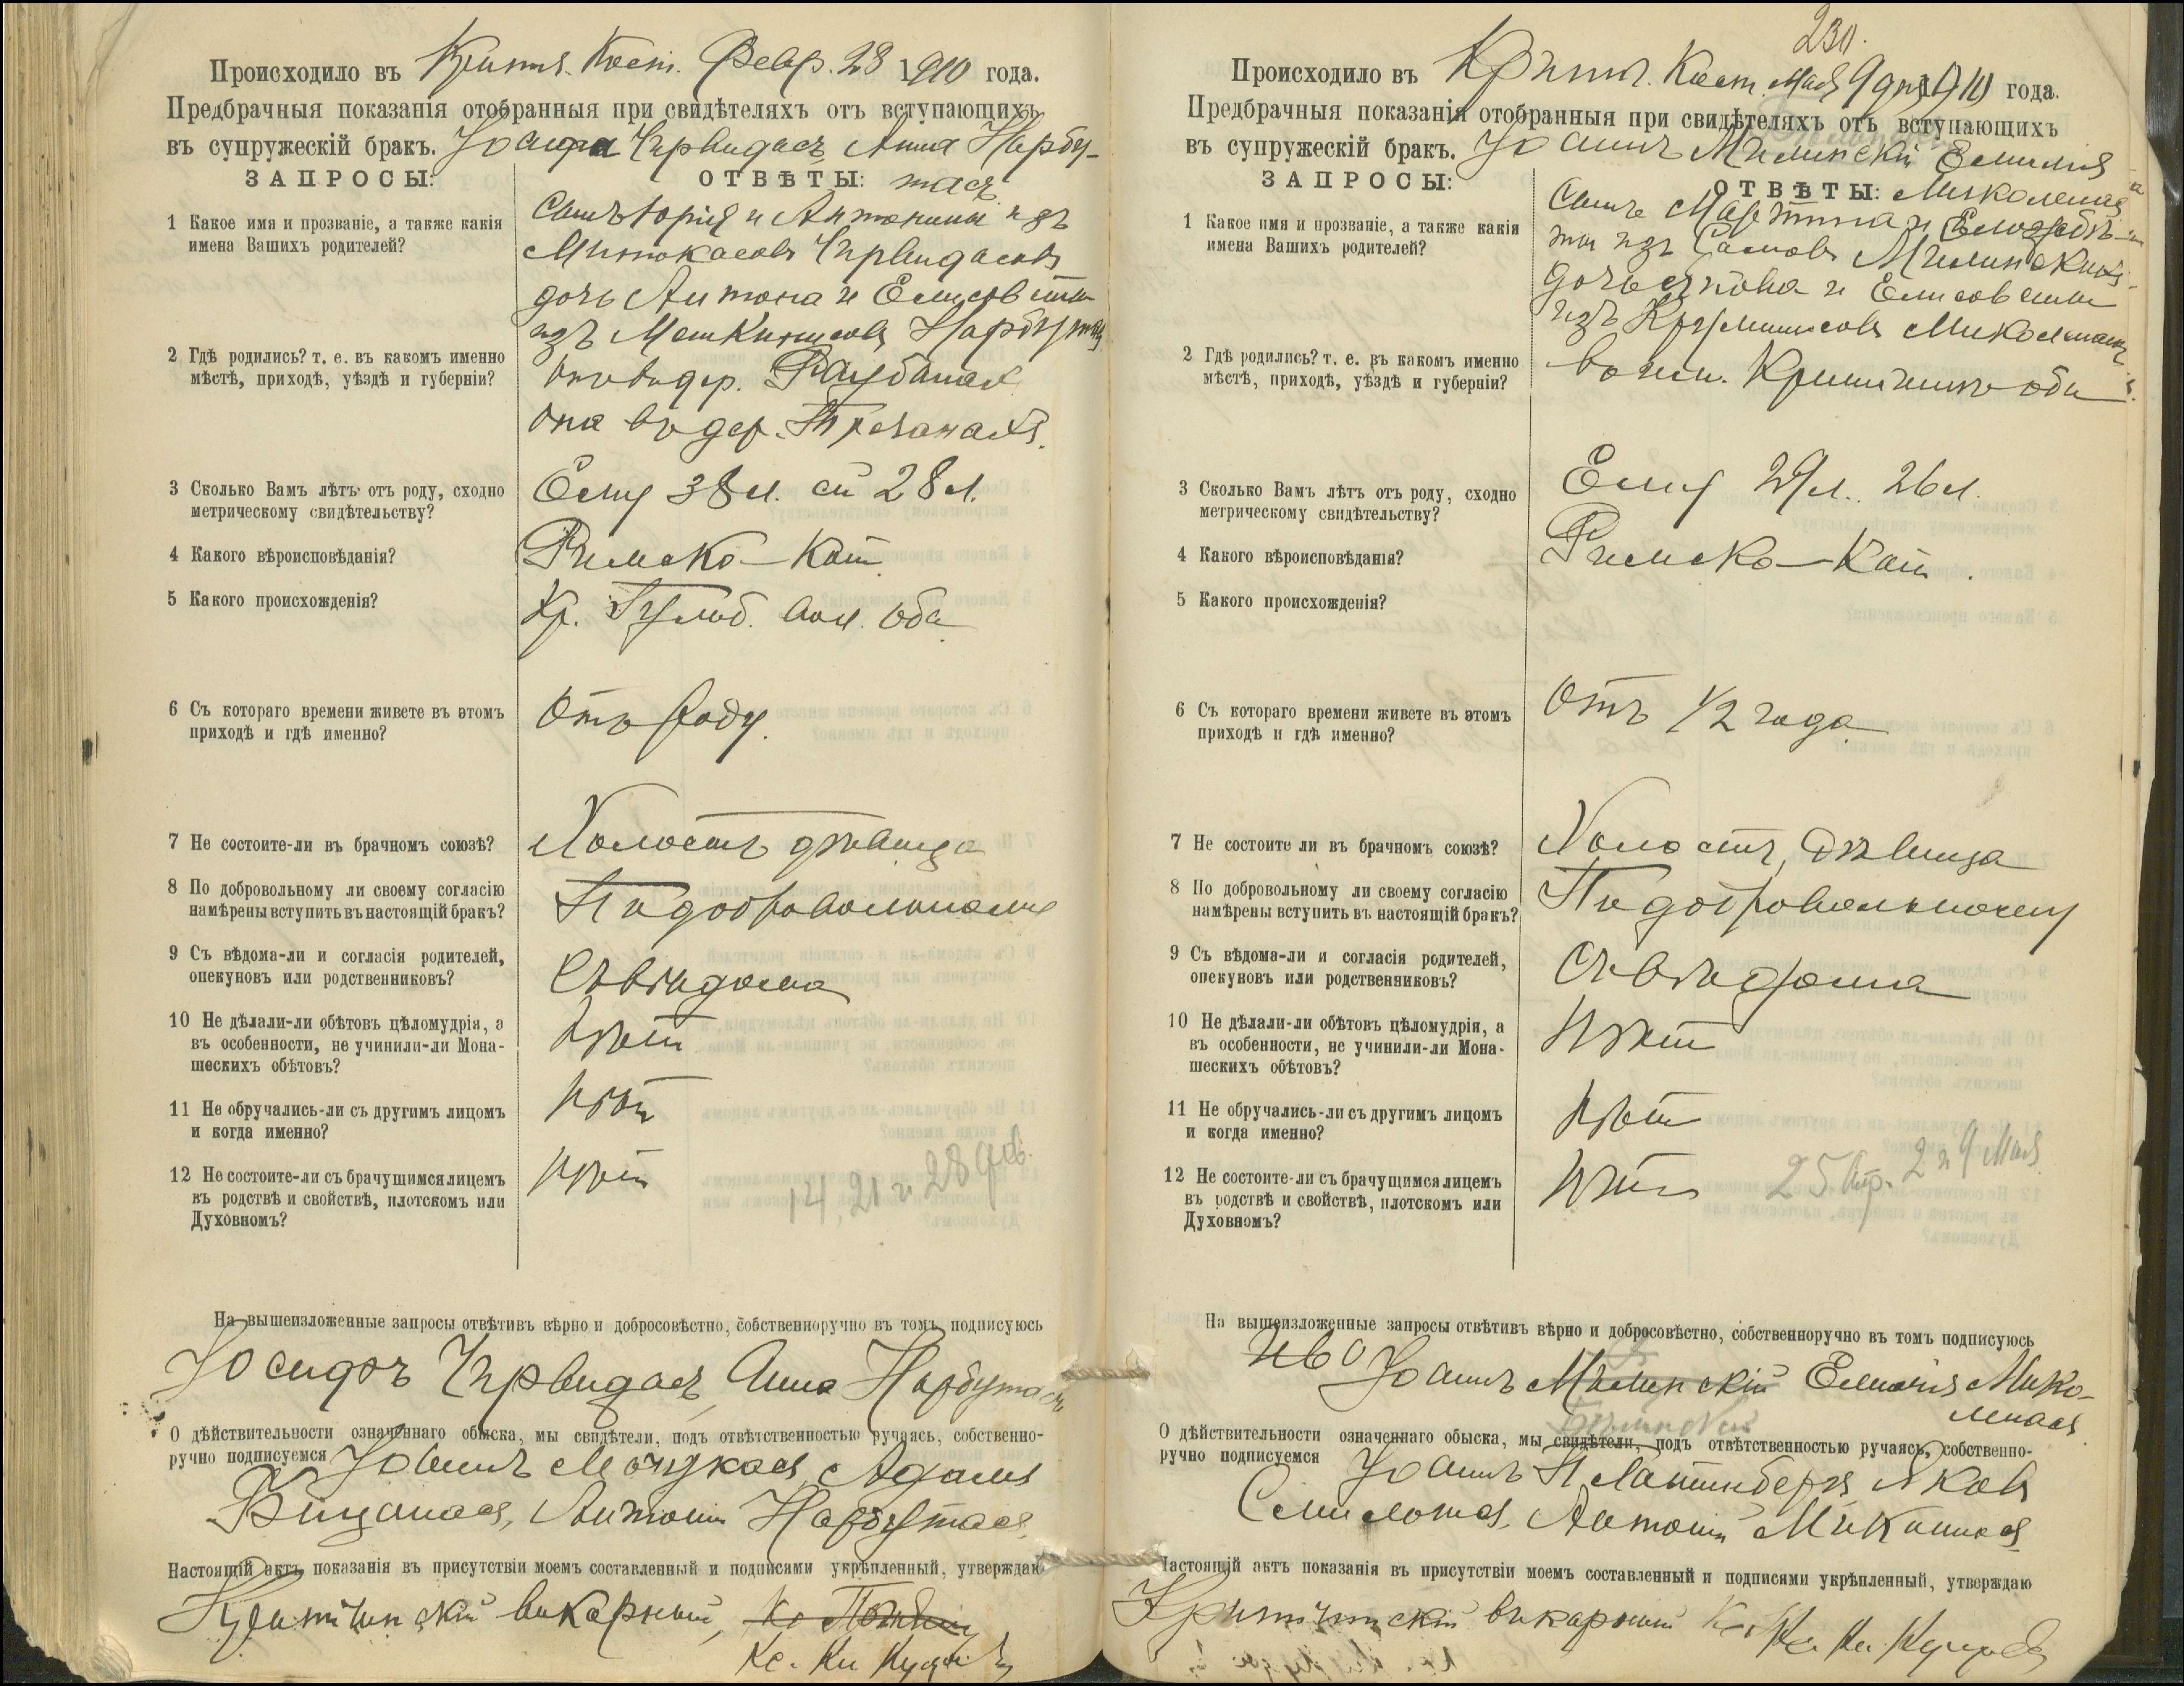 Происходило въ Критин. Кост. Февр. 28 1910 года.
Предбрачныя показанія отобранныя при свидѣтеляхъ отъ вступающихъ
въ супружескій бракъ. Іосифа Чирвидасъ, Анна Нарбу-
ЗАПРОСЫ: ОТВѢТЫ: тасъ
1 Какое имя и прозваніе, а также какія
имена Вашихъ родителей?
Сынъ Юрія и Антонины изъ
Чирвидасовъ
дочь Антона и Елисаветы
изъ Нарбутасъ
2 Гдѣ родились? т. е. въ какомъ именно
мѣстѣ, приходѣ, уѣздѣ и губерніи?
Онъ въ дер.
Она въ дер.
3 Сколько Вамъ лѣтъ отъ роду, сходно
метрическому свидѣтельству?
Ему 38 л. ей 28 л.
4 Какого вѣроисповѣданія?
Римско-Кат
5 Какого происхожденія?
Кр. вол. оба
6 Съ котораго времени живете въ этомъ
приходѣ и гдѣ именно?
Отъ роду.
7 Не состоите-ли въ брачномъ союзѣ?
Холостъ дѣвица
8 По добровольному ли своему согласію
намѣрены вступить въ настоящій бракъ?
По добровольному
9 Съ вѣдома-ли и согласія родителей,
опекуновъ или родственниковъ?
Съ вѣдома
10 Не дѣлали-ли обѣтовъ цѣломудрія, а
въ особенности, не учинили-ли Мона-
шескихъ обѣтовъ?
Нѣтъ
11 Не обручались-ли съ другимъ лицомъ
и когда именно?
Нѣтъ
12 Не состоите-ли съ брачущимся лицемъ
въ родствѣ и свойствѣ, плотскомъ или
Духовномъ?
Нѣтъ
14, 21 и 28 фев.
На вышеизложенные запросы отвѣтивъ вѣрно и добросовѣстно, собственноручно въ томъ подписуюсь
Іосифъ Чирвидасъ, Анна Нарбутасъ
О дѣйствительности означеннаго обыска, мы свидѣтели, подъ отвѣтственностью ручаясь, собственно-
ручно подписуемся Іоаннъ Мацукасъ, Адамъ
Антоній Нарбутасъ
Настоящій актъ показанія въ присутствіи моемъ составленный и подписями укрѣпленный, утверждаю
Критинскій викарный,
Кс.
230.
Происходило въ Критин. Кост. Мая 9 дня 1910 года.
Предбрачныя показанія отобранныя при свидѣтеляхъ отъ вступающихъ
въ супружескій бракъ. Іоаннъ Милинскій Емилія
ЗАПРОСЫ: ОТВѢТЫ: Миколенасъ
1 Какое имя и прозваніе, а также какія
имена Вашихъ родителей?
Сынъ Мартина и Елизабе-
ты изъ Милинскихъ
дочь Якова и Елисаветы
изъ
2 Гдѣ родились? т. е. въ какомъ именно
мѣстѣ, приходѣ, уѣздѣ и губерніи?
оба
3 Сколько Вамъ лѣтъ отъ роду, сходно
метрическому свидѣтельству?
Ему 29 л. 26 л.
4 Какого вѣроисповѣданія?
Римско-Кат.
5 Какого происхожденія?
6 Съ котораго времени живете въ этомъ
приходѣ и гдѣ именно?
Отъ 1/2 года
7 Не состоите ли въ брачномъ союзѣ?
Холостъ, дѣвица
8 По добровольному ли своему согласію
намѣрены вступить въ настоящій бракъ?
По добровольному
9 Съ вѣдома-ли и согласія родителей,
опекуновъ или родственниковъ?
Съ вѣдома
10 Не дѣлали-ли обѣтовъ цѣломудрія, а
въ особенности, не учинили-ли Мона-
шескихъ обѣтовъ?
Нѣтъ
11 Не обручались-ли съ другимъ лицомъ
и когда именно?
Нѣтъ
12 Не состоите-ли съ брачущимся лицемъ
въ родствѣ и свойствѣ, плотскомъ или
Духовномъ?
Нѣтъ
25 Апр. 2 и 9 Мая
На вышеизложенные запросы отвѣтивъ вѣрно и добросовѣстно, собственноручно въ томъ подписуюсь
Іоаннъ Милинскій Емилія Мико-
ленасъ
О дѣйствительности означеннаго обыска, мы свидѣтели, подъ отвѣтственностью ручаясь, собственно-
ручно подписуемся Іоаннъ Платинбергъ, Яковъ
Антоній
Настоящій актъ показанія въ присутствіи моемъ составленный и подписями укрѣпленный, утверждаю
Критинскій викарный Кс.